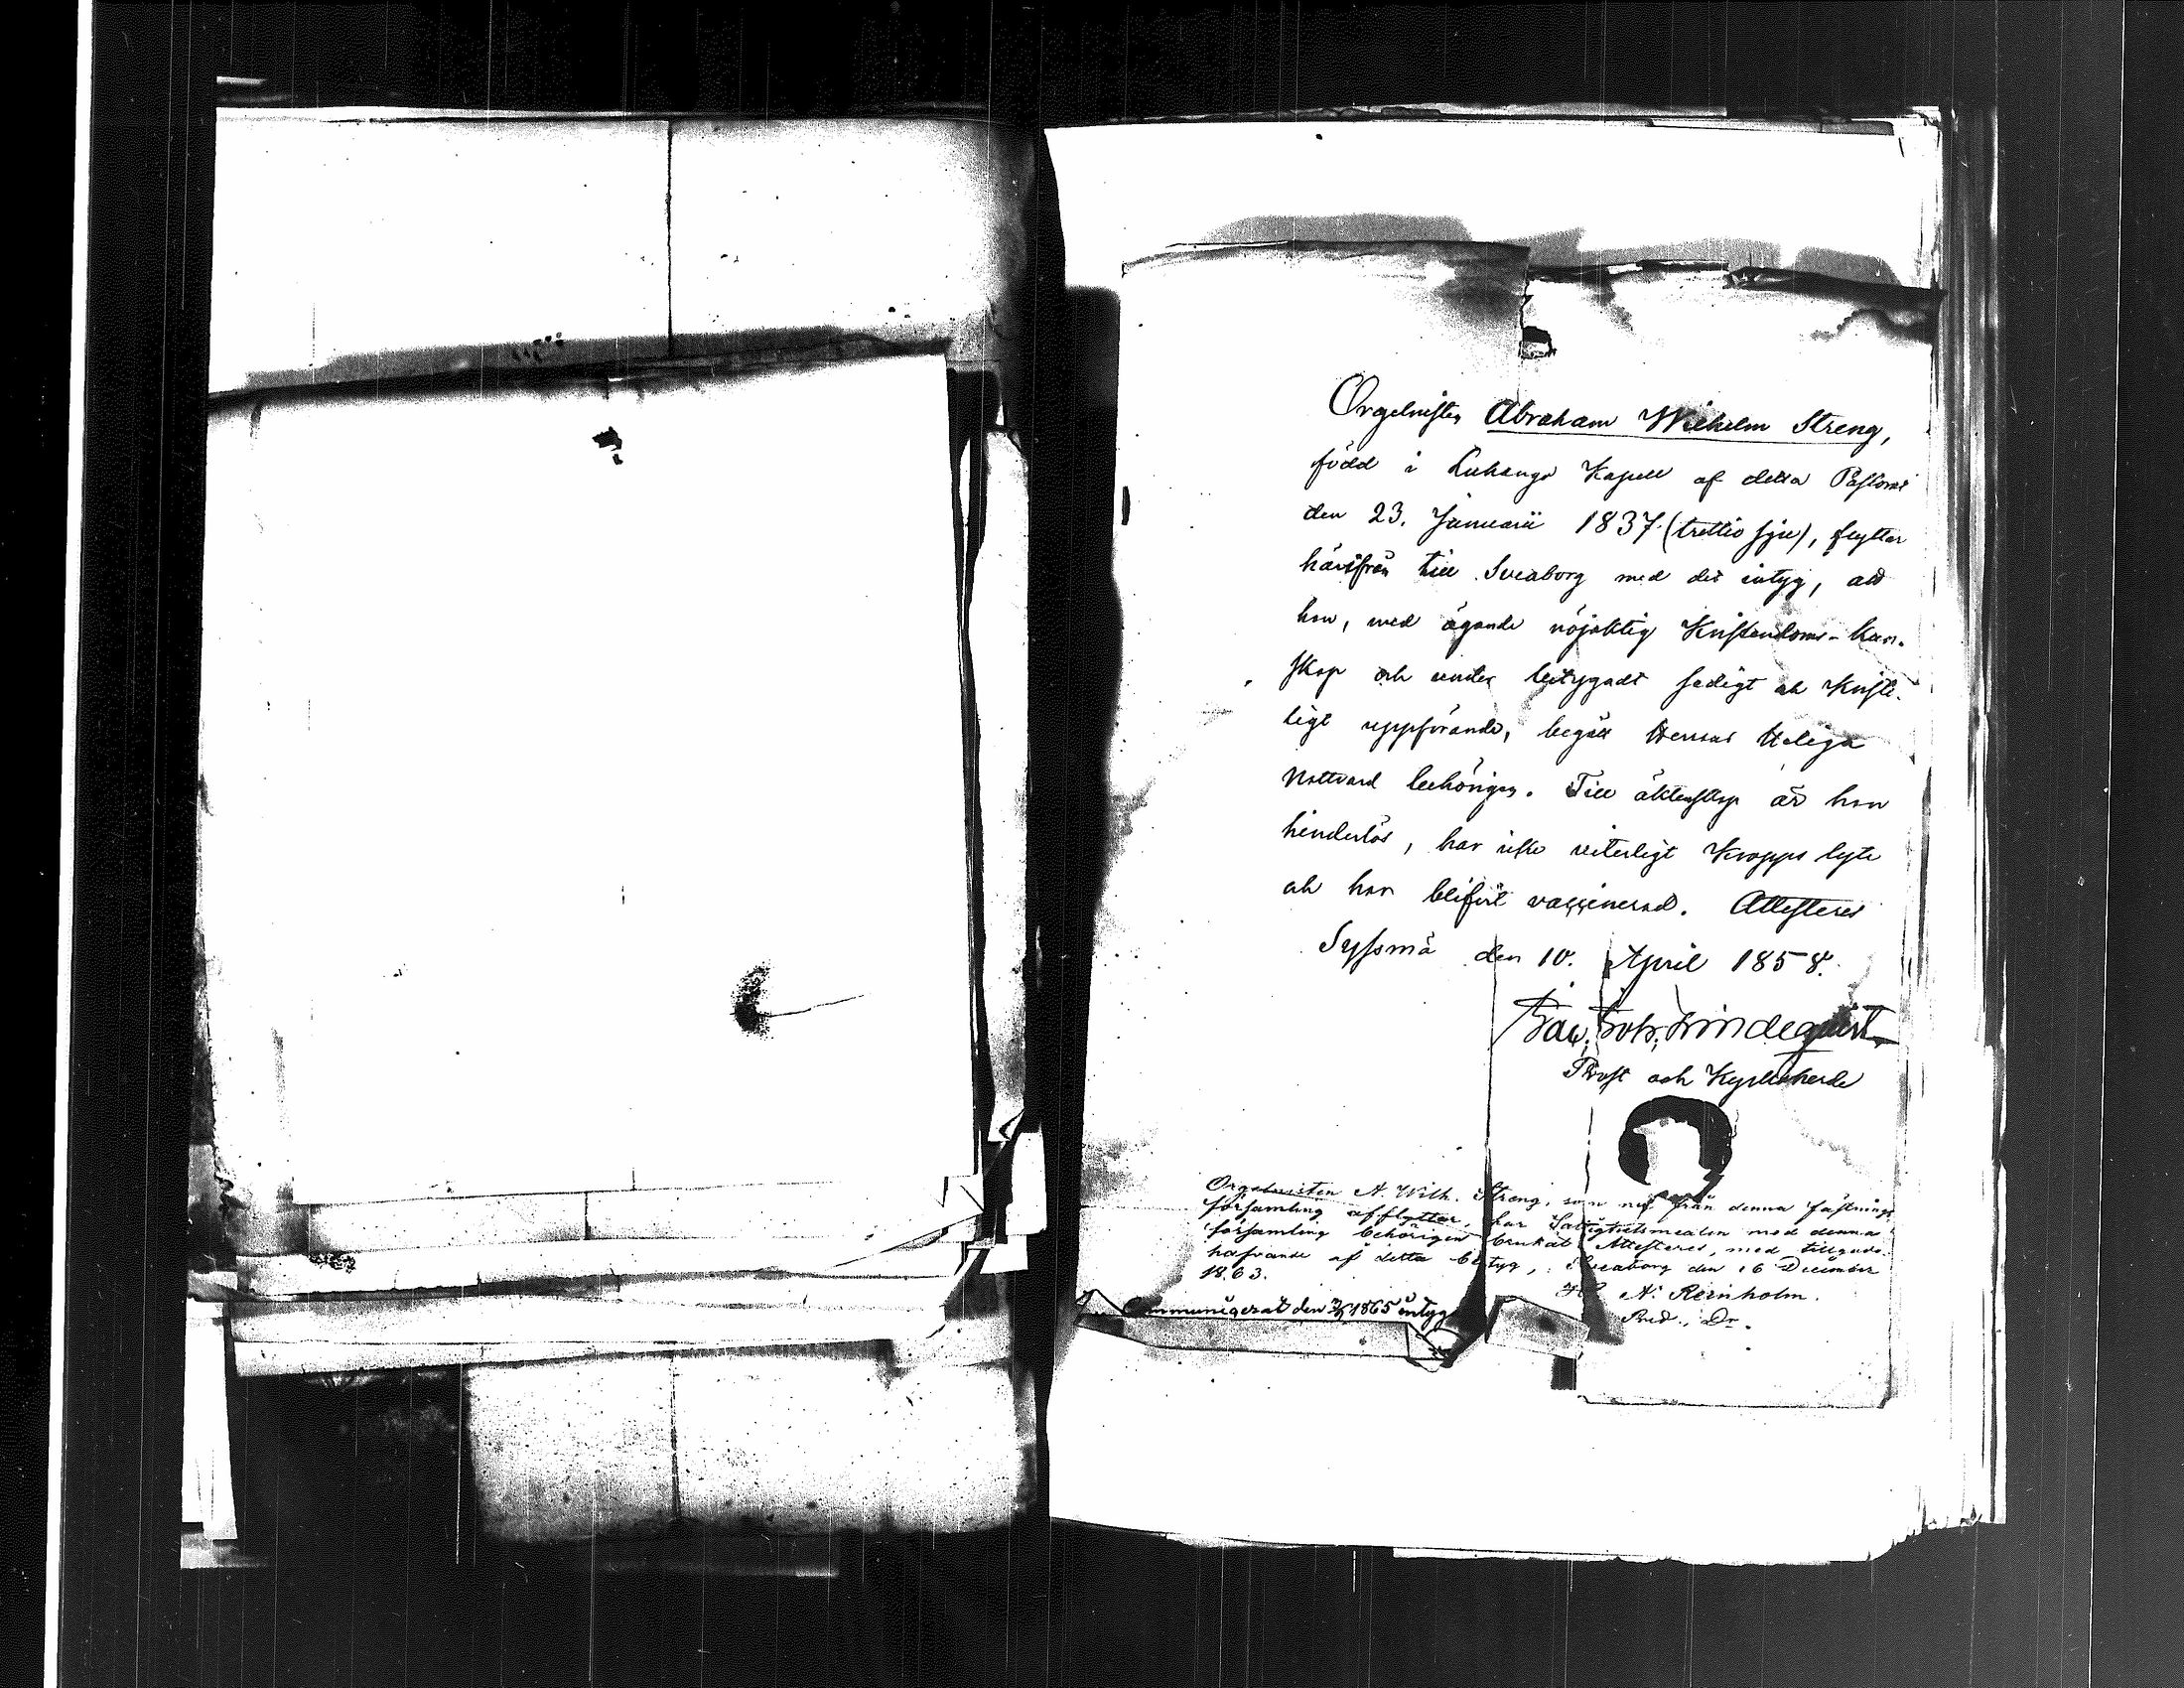 Orgelnisten Abraham Wilhelm Streng,
född i Luhango Kapell af detta Pastorat
den 23. Januarii 1837 (trettio sju), flyttar
härifrån till Sveaborg med det intyg, att
han, med ägande nöjaktig Kristendoms-kun-
skap och under betygadt sedigt och Kriste-
ligt uppförande, begått Herrans Heliga
Nattvard behörigen. Till äktenskap är han
hinderlös, har icke veterligt Kropps lyte
och har blifvit vaccinerad. Attesteres
Syssmä den 10. April 1858.
Lindequist
Prost och Kyrkoherde
Orgelnisten A. Wilh. Streng, som nu från denna fästnings
församling afflyttar, har Salighetsmedlen med denna
församling behörigen brukat. Attesteres, med tillgodo-
hafvande af detta betyg, i Sveaborg den 16 December
1863.
H. A. Reinholm.
Pred., Dr.
Communicerat den 1865 intyg